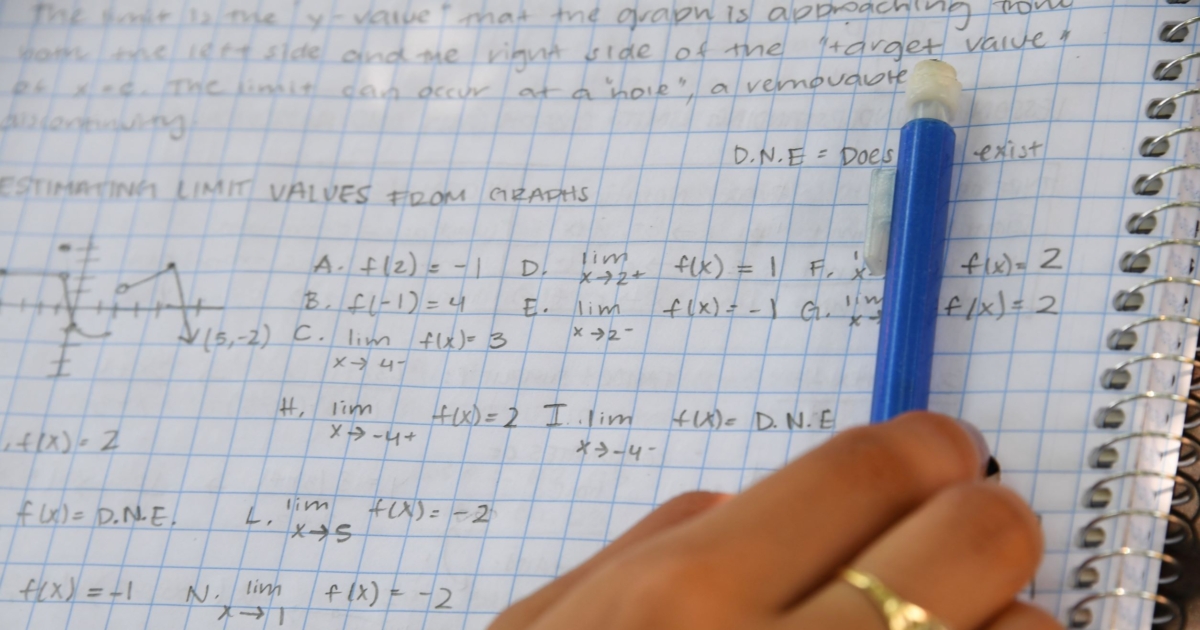 The limit is the "y-value" that the graph is approaching from
both the left side and the right side of the "target value"
of x=c. The limit can occur at a "hole", a removable
discontinuity.
D.N.E = Does exist
ESTIMATING LIMIT VALUES FROM GRAPHS
A. f(2) = -1 D. lim x→2+ f(x) = 1 F. f(x)= 2
B. f(-1) = 4 E. lim x→2- f(x) = -1 G. lim x→ f(x) = 2
(5,-2) C. lim x→4- f(x)= 3
H. lim x→-4+ f(x)=2 I. lim x→-4- f(x)= D.N.E
f(x)= 2
f(x)= D.N.E. L. lim x→5 f(x)= -2
f(x) = -1 N. lim x→1 f(x) = -2